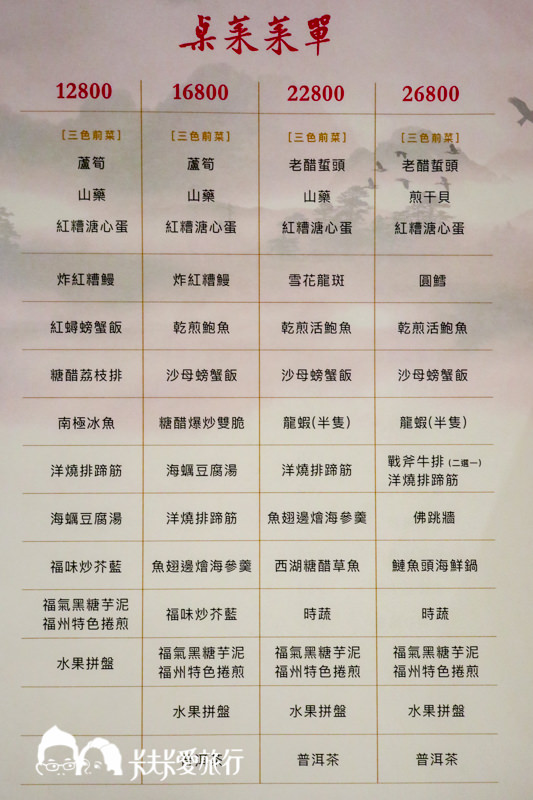 桌菜菜單
12800 16800 22800 26800
[三色前菜] [三色前菜] [三色前菜] [三色前菜]
蘆筍 蘆筍 老醋蜇頭 老醋蜇頭
山藥 山藥 山藥 煎干貝
紅糟溏心蛋 紅糟溏心蛋 紅糟溏心蛋 紅糟溏心蛋
炸紅糟鰻 炸紅糟鰻 雪花龍斑 圓鱈
紅蟳螃蟹飯 乾煎鮑魚 乾煎活鮑魚 乾煎活鮑魚
糖醋荔枝排 沙母螃蟹飯 沙母螃蟹飯 沙母螃蟹飯
南極冰魚 糖醋爆炒雙脆 龍蝦(半隻) 龍蝦(半隻)
洋燒排蹄筋 海蠣豆腐湯 洋燒排蹄筋 戰斧牛排 (二選一)
洋燒排蹄筋
海蠣豆腐湯 洋燒排蹄筋 魚翅邊燴海參羹 佛跳牆
福味炒芥藍 魚翅邊燴海參羹 西湖糖醋草魚 鰱魚頭海鮮鍋
福氣黑糖芋泥 福味炒芥藍 時蔬 時蔬
福州特色捲煎
水果拼盤 福氣黑糖芋泥 福氣黑糖芋泥 福氣黑糖芋泥
福州特色捲煎 福州特色捲煎 福州特色捲煎
水果拼盤 水果拼盤 水果拼盤
普洱茶 普洱茶 普洱茶
愛旅行